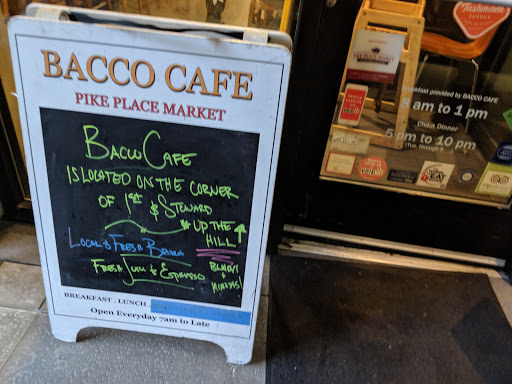 BACCO CAFE
PIKE PLACE MARKET
BACCO CAFE
IS LOCATED ON THE CORNER
OF 1ST & STEWARD
UP THE
HILL
LOCAL & FRESH
FRESH JUICE & ESPRESSO
BLOODY
&
MIMOSAS!
BREAKFAST . LUNCH .
Open Everyday 7am to Late
Breakfast provided by BACCO CAFE
8 am to 1 pm
Dinner
5 pm to 10 pm
yelp